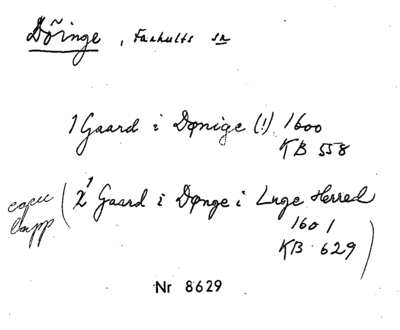 Döinge, Farhults sn
1 Gaard i Dønige (!) 1600
KB 558
2 Gaard i Dønge i Luge Herred
1601
KB 629
Nr 8629